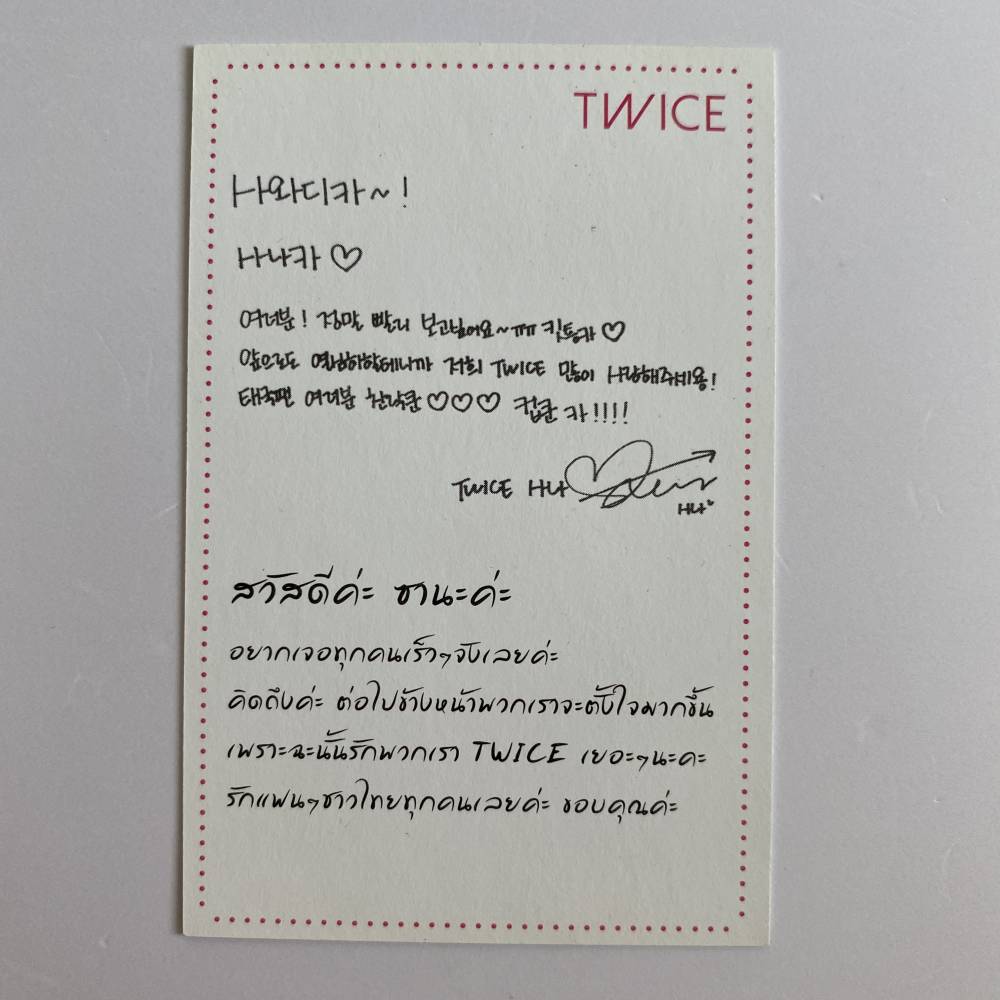 TWICE
사와디카~!
사나카♡
여러분! 정말 빨리 보고싶어요~ㅠㅠ 킷틍카♡
앞으로도 열심히할테니까 저희 TWICE 많이 사랑해주세용!
태국팬 여러분 찬낙쿤♡♡♡ 컵쿤 카!!!!
TWICE 사나
사나♡
สวัสดีค่ะ ซานะค่ะ
อยากเจอทุกคนเร็วๆจังเลยค่ะ
คิดถึงค่ะ ต่อไปข้างหน้าพวกเราจะตั้งใจมากขึ้น
เพราะฉะนั้นรักพวกเรา TWICE เยอะๆนะคะ
รักแฟนๆชาวไทยทุกคนเลยค่ะ ขอบคุณค่ะ